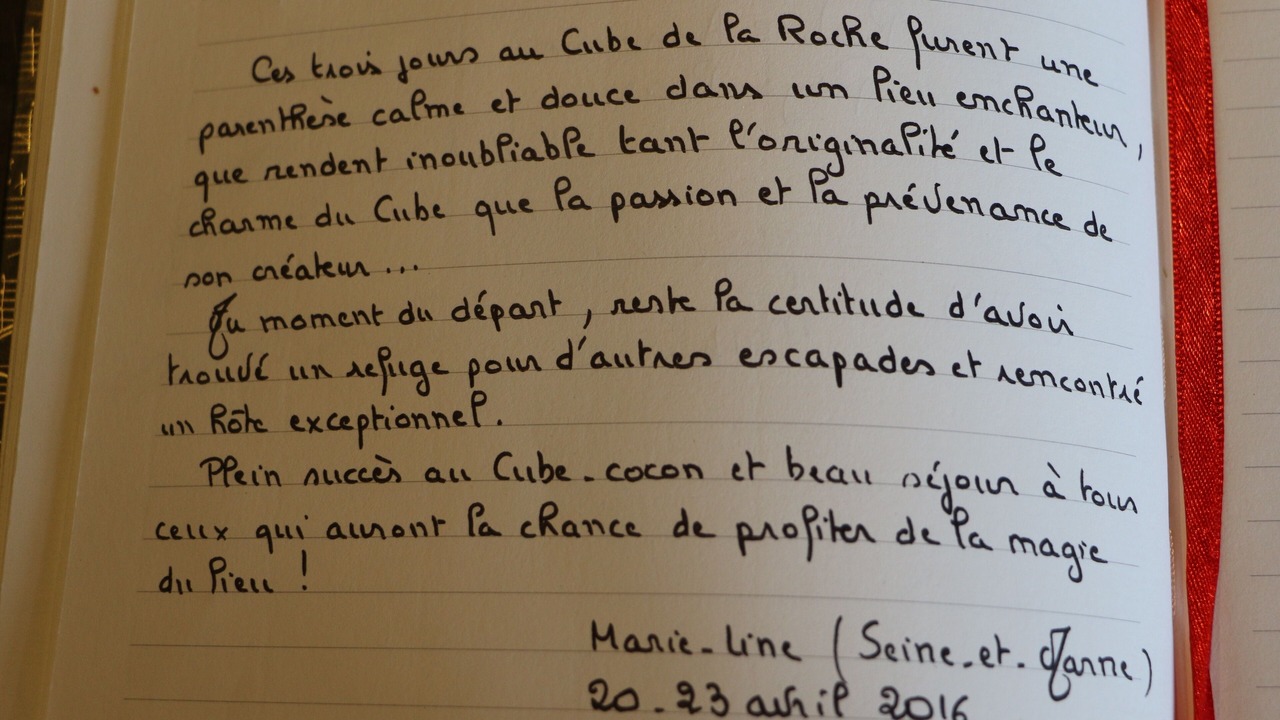 Ces trois jours au Cube de la Roche furent une
parenthèse calme et douce dans un lieu enchanteur,
que rendent inoubliable tant l'originalité et le
charme du Cube que la passion et la prévenance de
son créateur...
Au moment du départ, reste la certitude d'avoir
trouvé un refuge pour d'autres escapades et rencontré
un hôte exceptionnel.
Plein succès au Cube-cocon et beau séjour à tous
ceux qui auront la chance de profiter de la magie
du lieu !
Marie-Line (Seine-et-Marne)
20-23 avril 2016